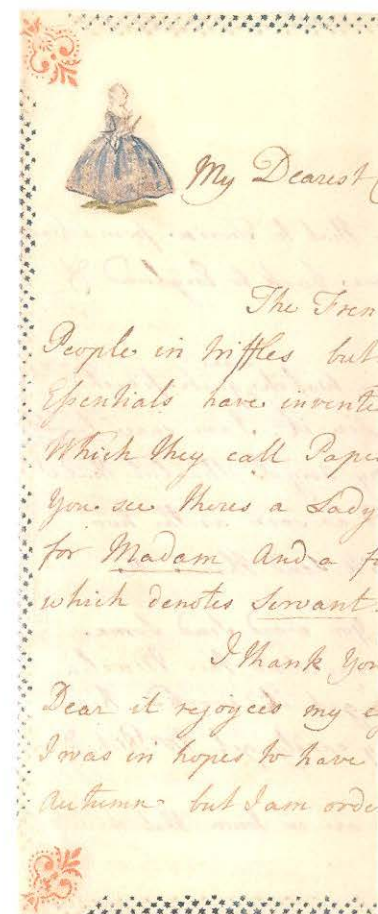 My Dearest
The Fren
People in triffles but
Essentials have invente
Which they call Pape
You see theres a Lady
for Madam and a f
which denotes Servant
I thank You
Dear it rejoyces my e
I was in hopes to have
Autumn but I am orde